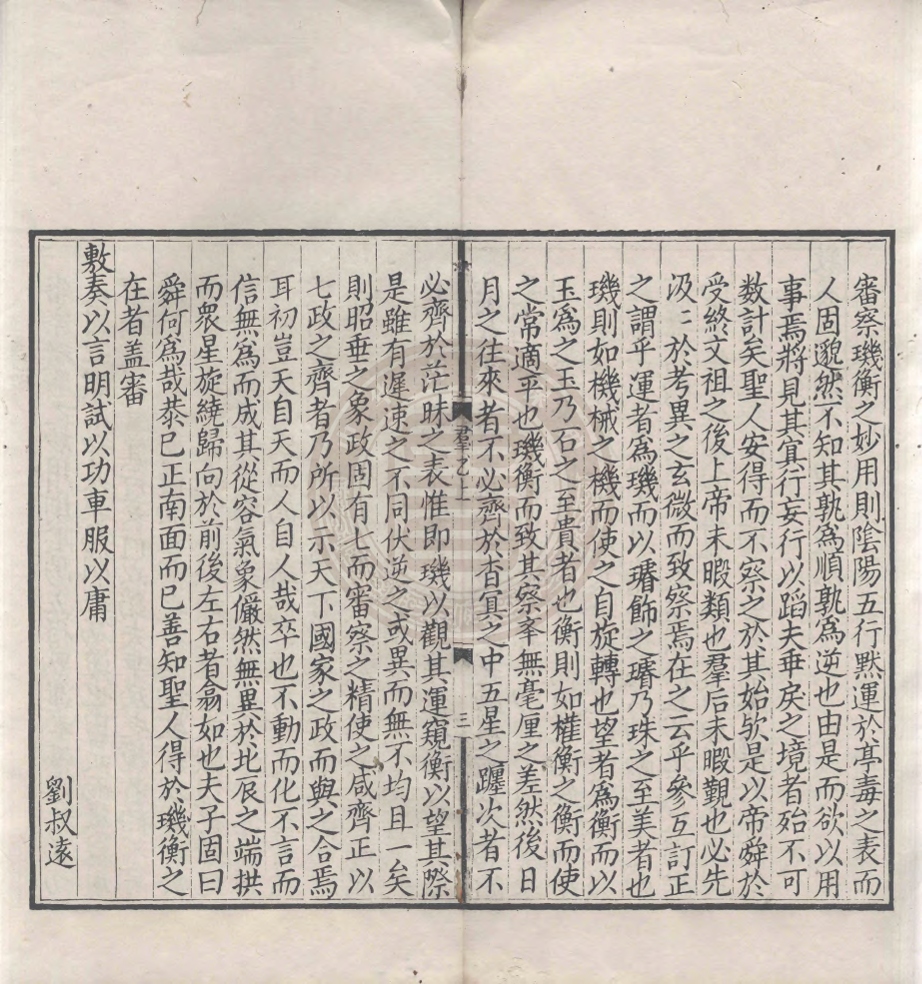 審察璣衡之妙用則陰陽五行黙運於亭毒之表而
人固邈然不知其孰為順孰為逆也由是而欲以用
事焉將見其冥行妄行以蹈夫乖戾之境者殆不可
数計矣聖人安得而不察之於其始欤是以帝舜於
受終文祖之後上帝未暇類也羣后未暇覲也必先
汲〻於考異之玄微而致察焉在之云乎參互訂正
之謂乎運者爲璣而以璿飾之璿乃珠之至美者也
璣則如機械之機而使之自旋轉也望者爲衡而以
玉爲之玉乃石之至貴者也衡則如權衡之衡而使
之常適平也璣衡而致其察卒無毫厘之差然後日
月之往來者不必齊於杳冥之中五星之躔次者不
羣乙上
三
必齊於茫昧之表惟即璣以觀其運窺衡以望其際
是雖有遲速之不同伏逆之或異而無不均且一矣
則昭垂之象政固有七而審察之精使之咸齊正以
七政之齊者乃所以示天下國家之政而與之合焉
耳初豈天自天而人自人哉卒也不動而化不言而
信無為而成其從容氣象儼然無異於北辰之端拱
而衆星旋繞歸向於前後左右者翕如也夫子固曰
舜何爲哉恭己正南面而已善知聖人得於璣衡之
在者盖審
敷奏以言明試以功車服以庸
劉叔遠